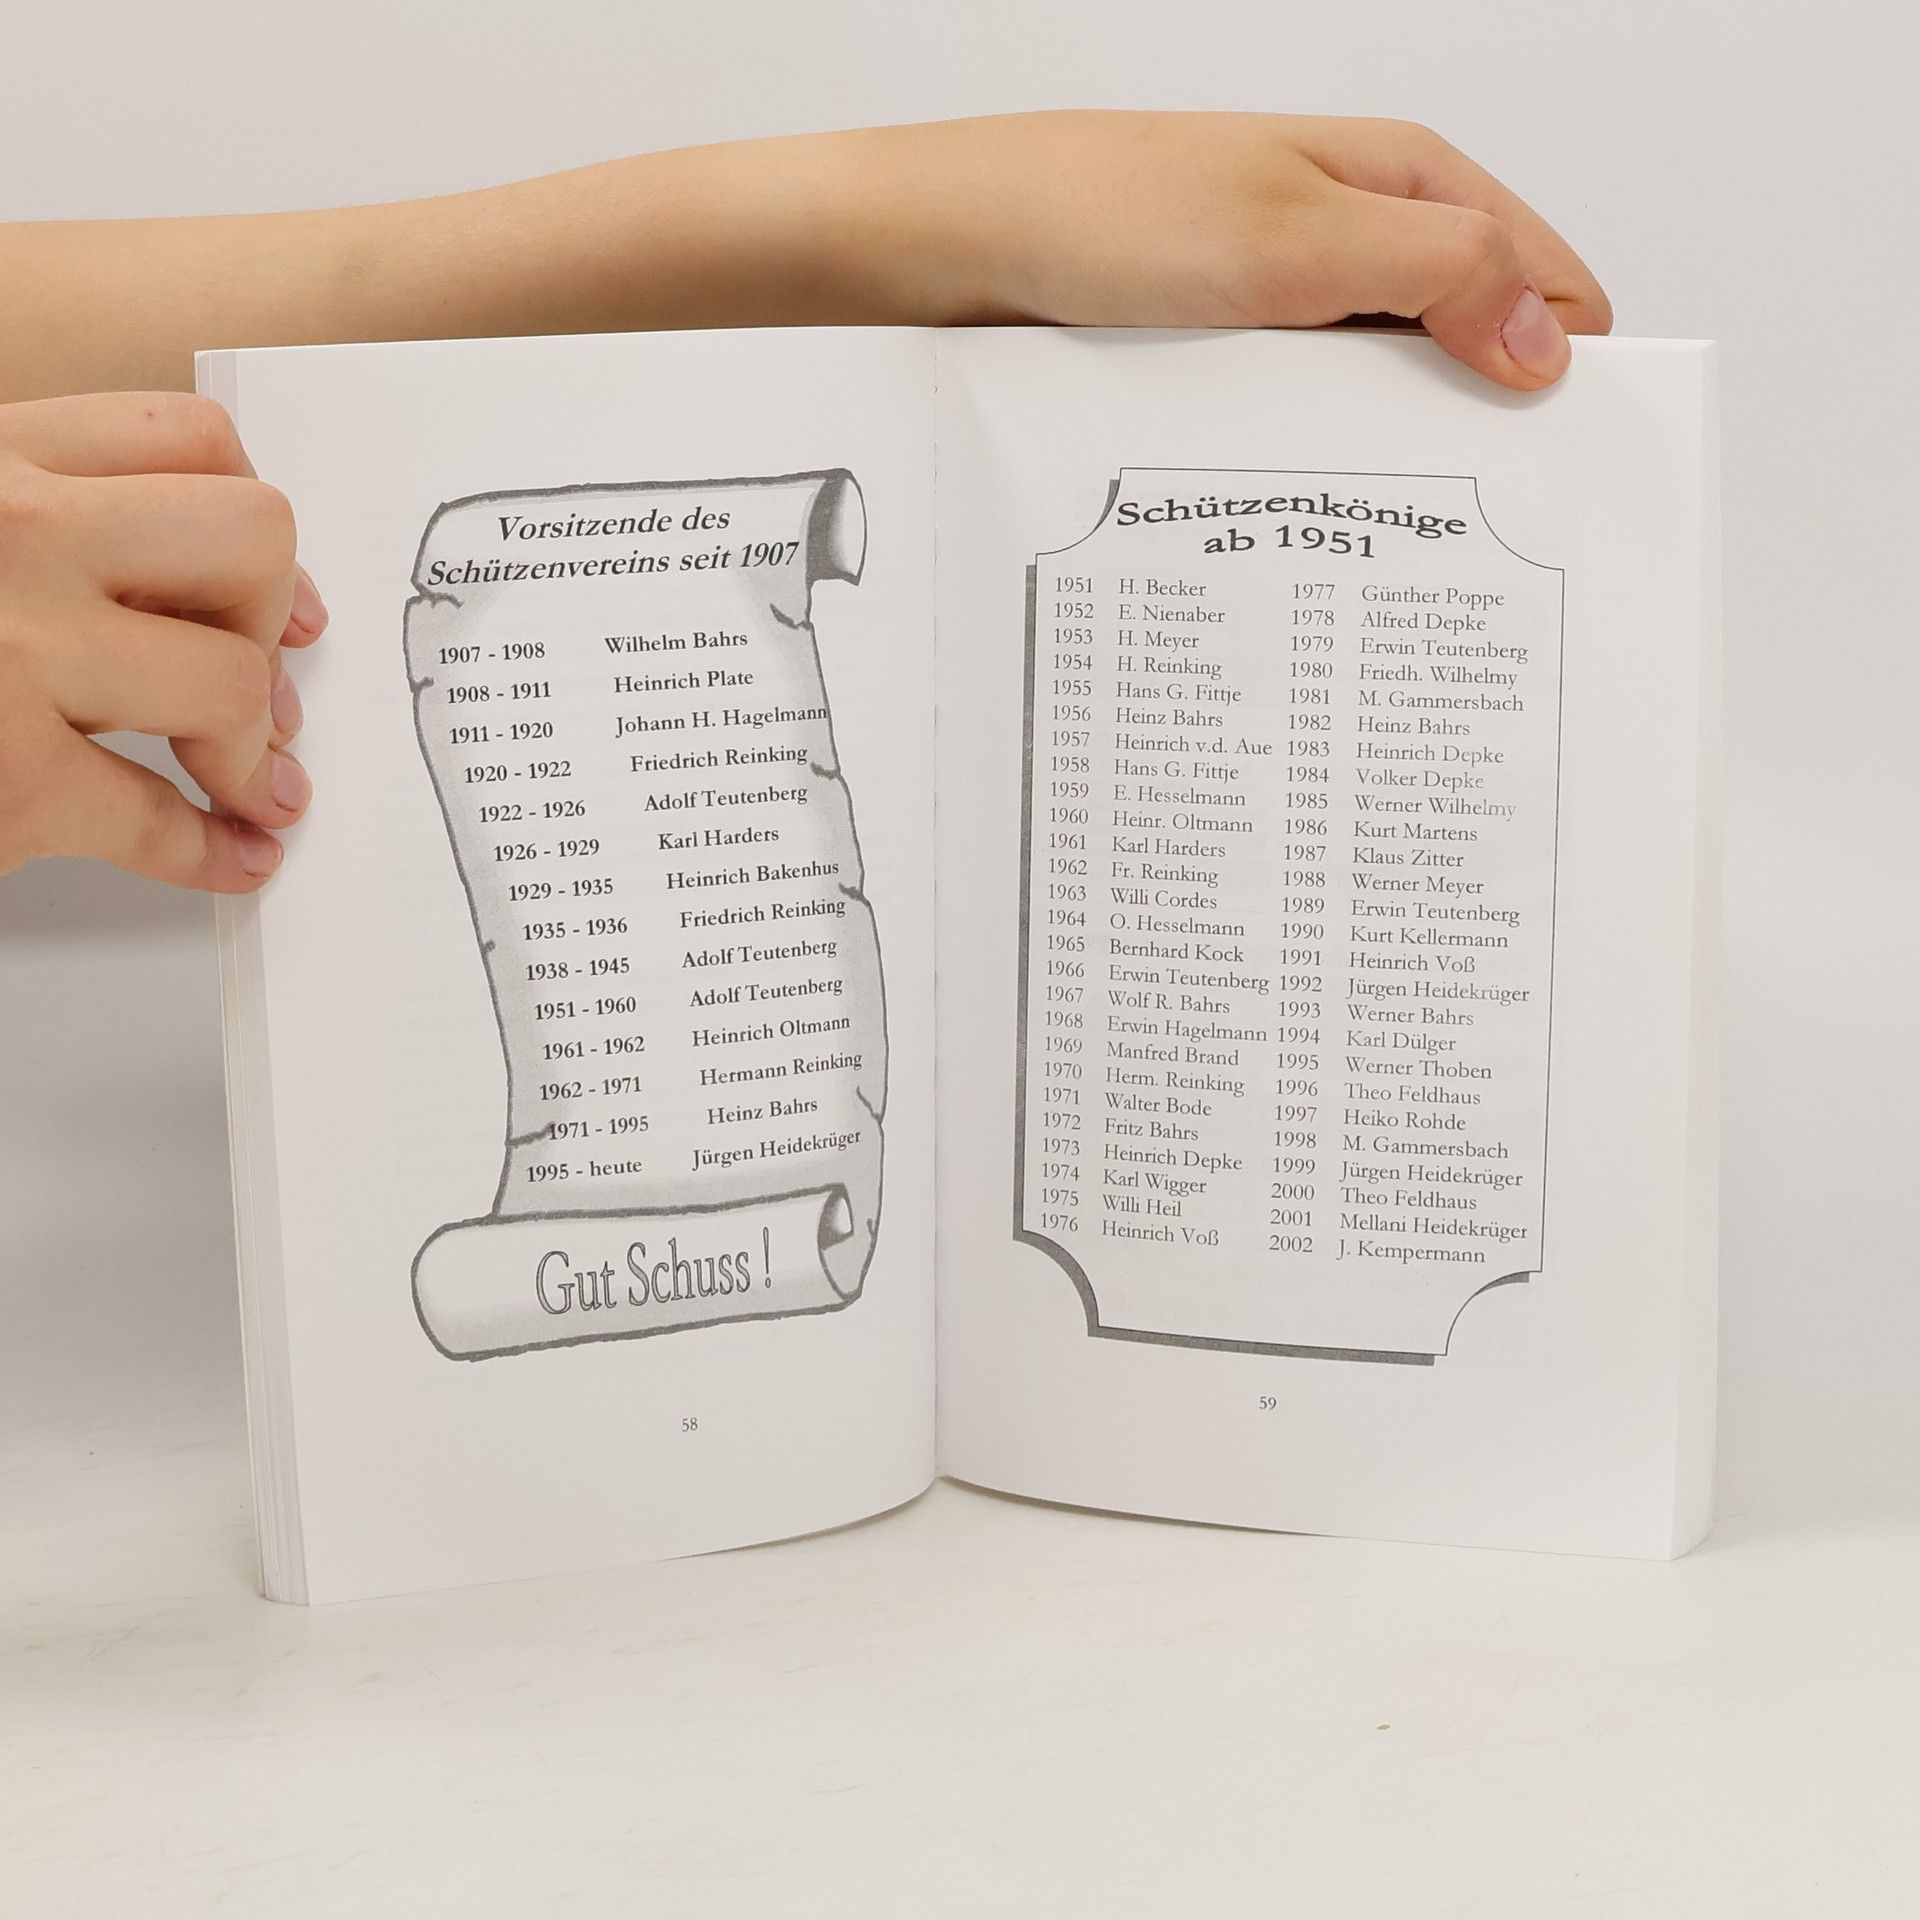 Vorsitzende des
Schützenvereins seit 1907
1907 - 1908 Wilhelm Bahrs
1908 - 1911 Heinrich Plate
1911 - 1920 Johann H. Hagelmann
1920 - 1922 Friedrich Reinking
1922 - 1926 Adolf Teutenberg
1926 - 1929 Karl Harders
1929 - 1935 Heinrich Bakenhus
1935 - 1936 Friedrich Reinking
1938 - 1945 Adolf Teutenberg
1951 - 1960 Adolf Teutenberg
1961 - 1962 Heinrich Oltmann
1962 - 1971 Hermann Reinking
1971 - 1995 Heinz Bahrs
1995 - heute Jürgen Heidekrüger
Gut Schuss !
58
Schützenkönige
ab 1951
1951 H. Becker 1977 Günther Poppe
1952 E. Nienaber 1978 Alfred Depke
1953 H. Meyer 1979 Erwin Teutenberg
1954 H. Reinking 1980 Friedh. Wilhelmy
1955 Hans G. Fittje 1981 M. Gammersbach
1956 Heinz Bahrs 1982 Heinz Bahrs
1957 Heinrich v.d. Aue 1983 Heinrich Depke
1958 Hans G. Fittje 1984 Volker Depke
1959 E. Hesselmann 1985 Werner Wilhelmy
1960 Heinr. Oltmann 1986 Kurt Martens
1961 Karl Harders 1987 Klaus Zitter
1962 Fr. Reinking 1988 Werner Meyer
1963 Willi Cordes 1989 Erwin Teutenberg
1964 O. Hesselmann 1990 Kurt Kellermann
1965 Bernhard Kock 1991 Heinrich Voß
1966 Erwin Teutenberg 1992 Jürgen Heidekrüger
1967 Wolf R. Bahrs 1993 Werner Bahrs
1968 Erwin Hagelmann 1994 Karl Dülger
1969 Manfred Brand 1995 Werner Thoben
1970 Herm. Reinking 1996 Theo Feldhaus
1971 Walter Bode 1997 Heiko Rohde
1972 Fritz Bahrs 1998 M. Gammersbach
1973 Heinrich Depke 1999 Jürgen Heidekrüger
1974 Karl Wigger 2000 Theo Feldhaus
1975 Willi Heil 2001 Mellani Heidekrüger
1976 Heinrich Voß 2002 J. Kempermann
59